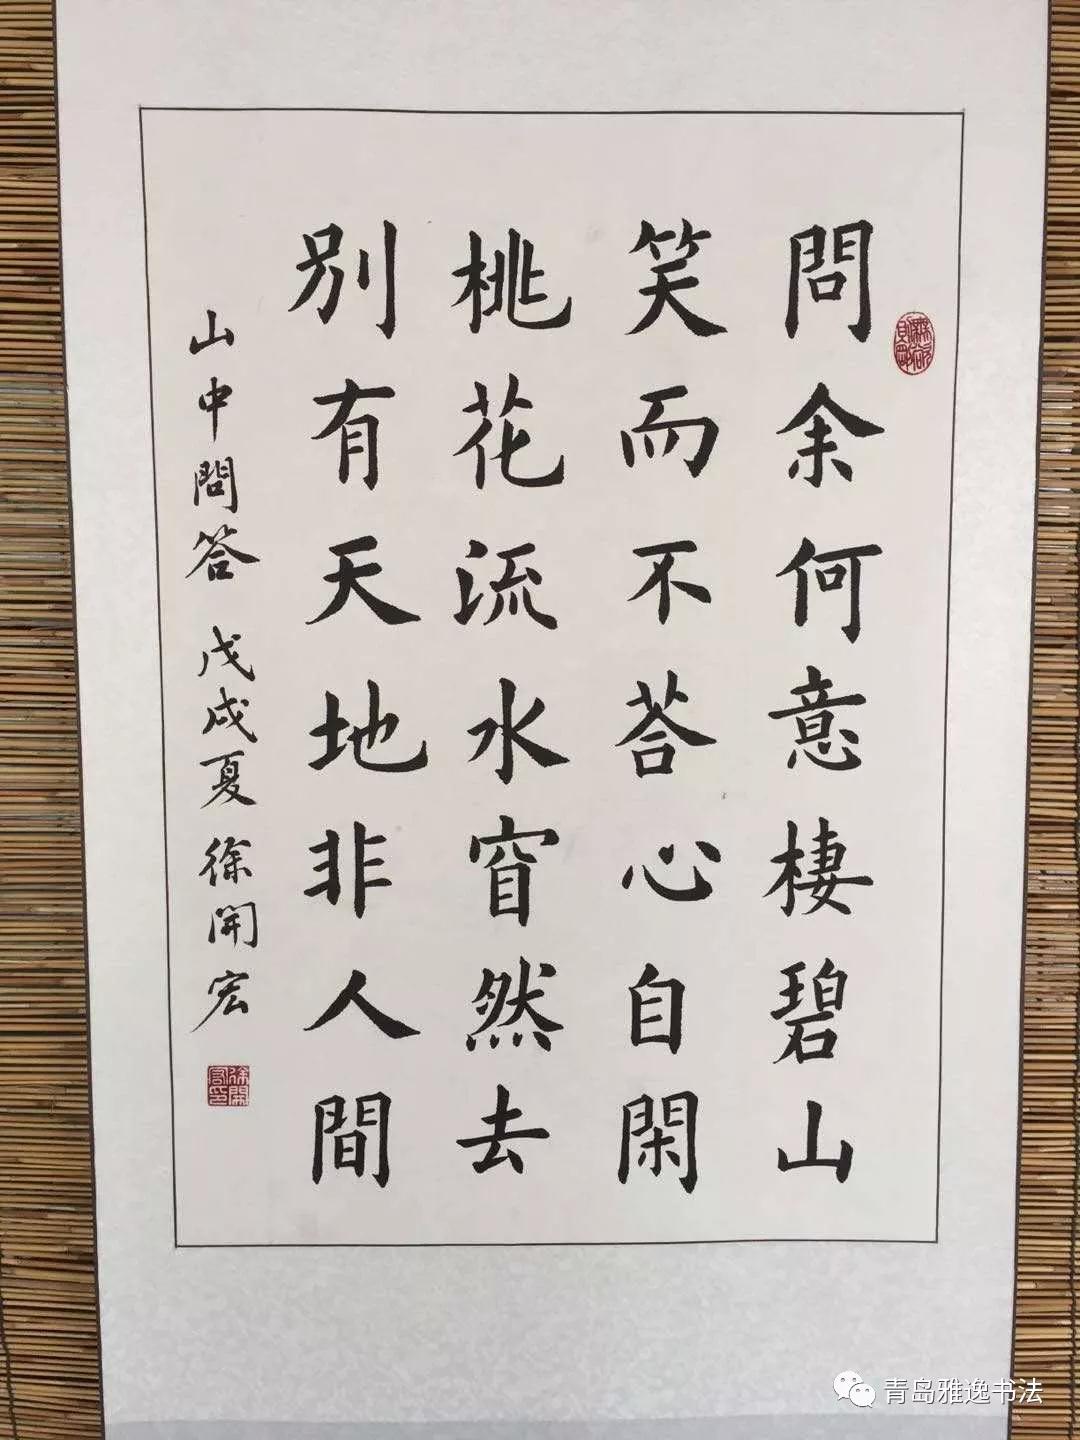 問余何意棲碧山
笑而不荅心自閑
桃花流水窅然去
別有天地非人間
山中問答 戊戌夏 徐開宏
徐開宏印
青岛雅逸书法